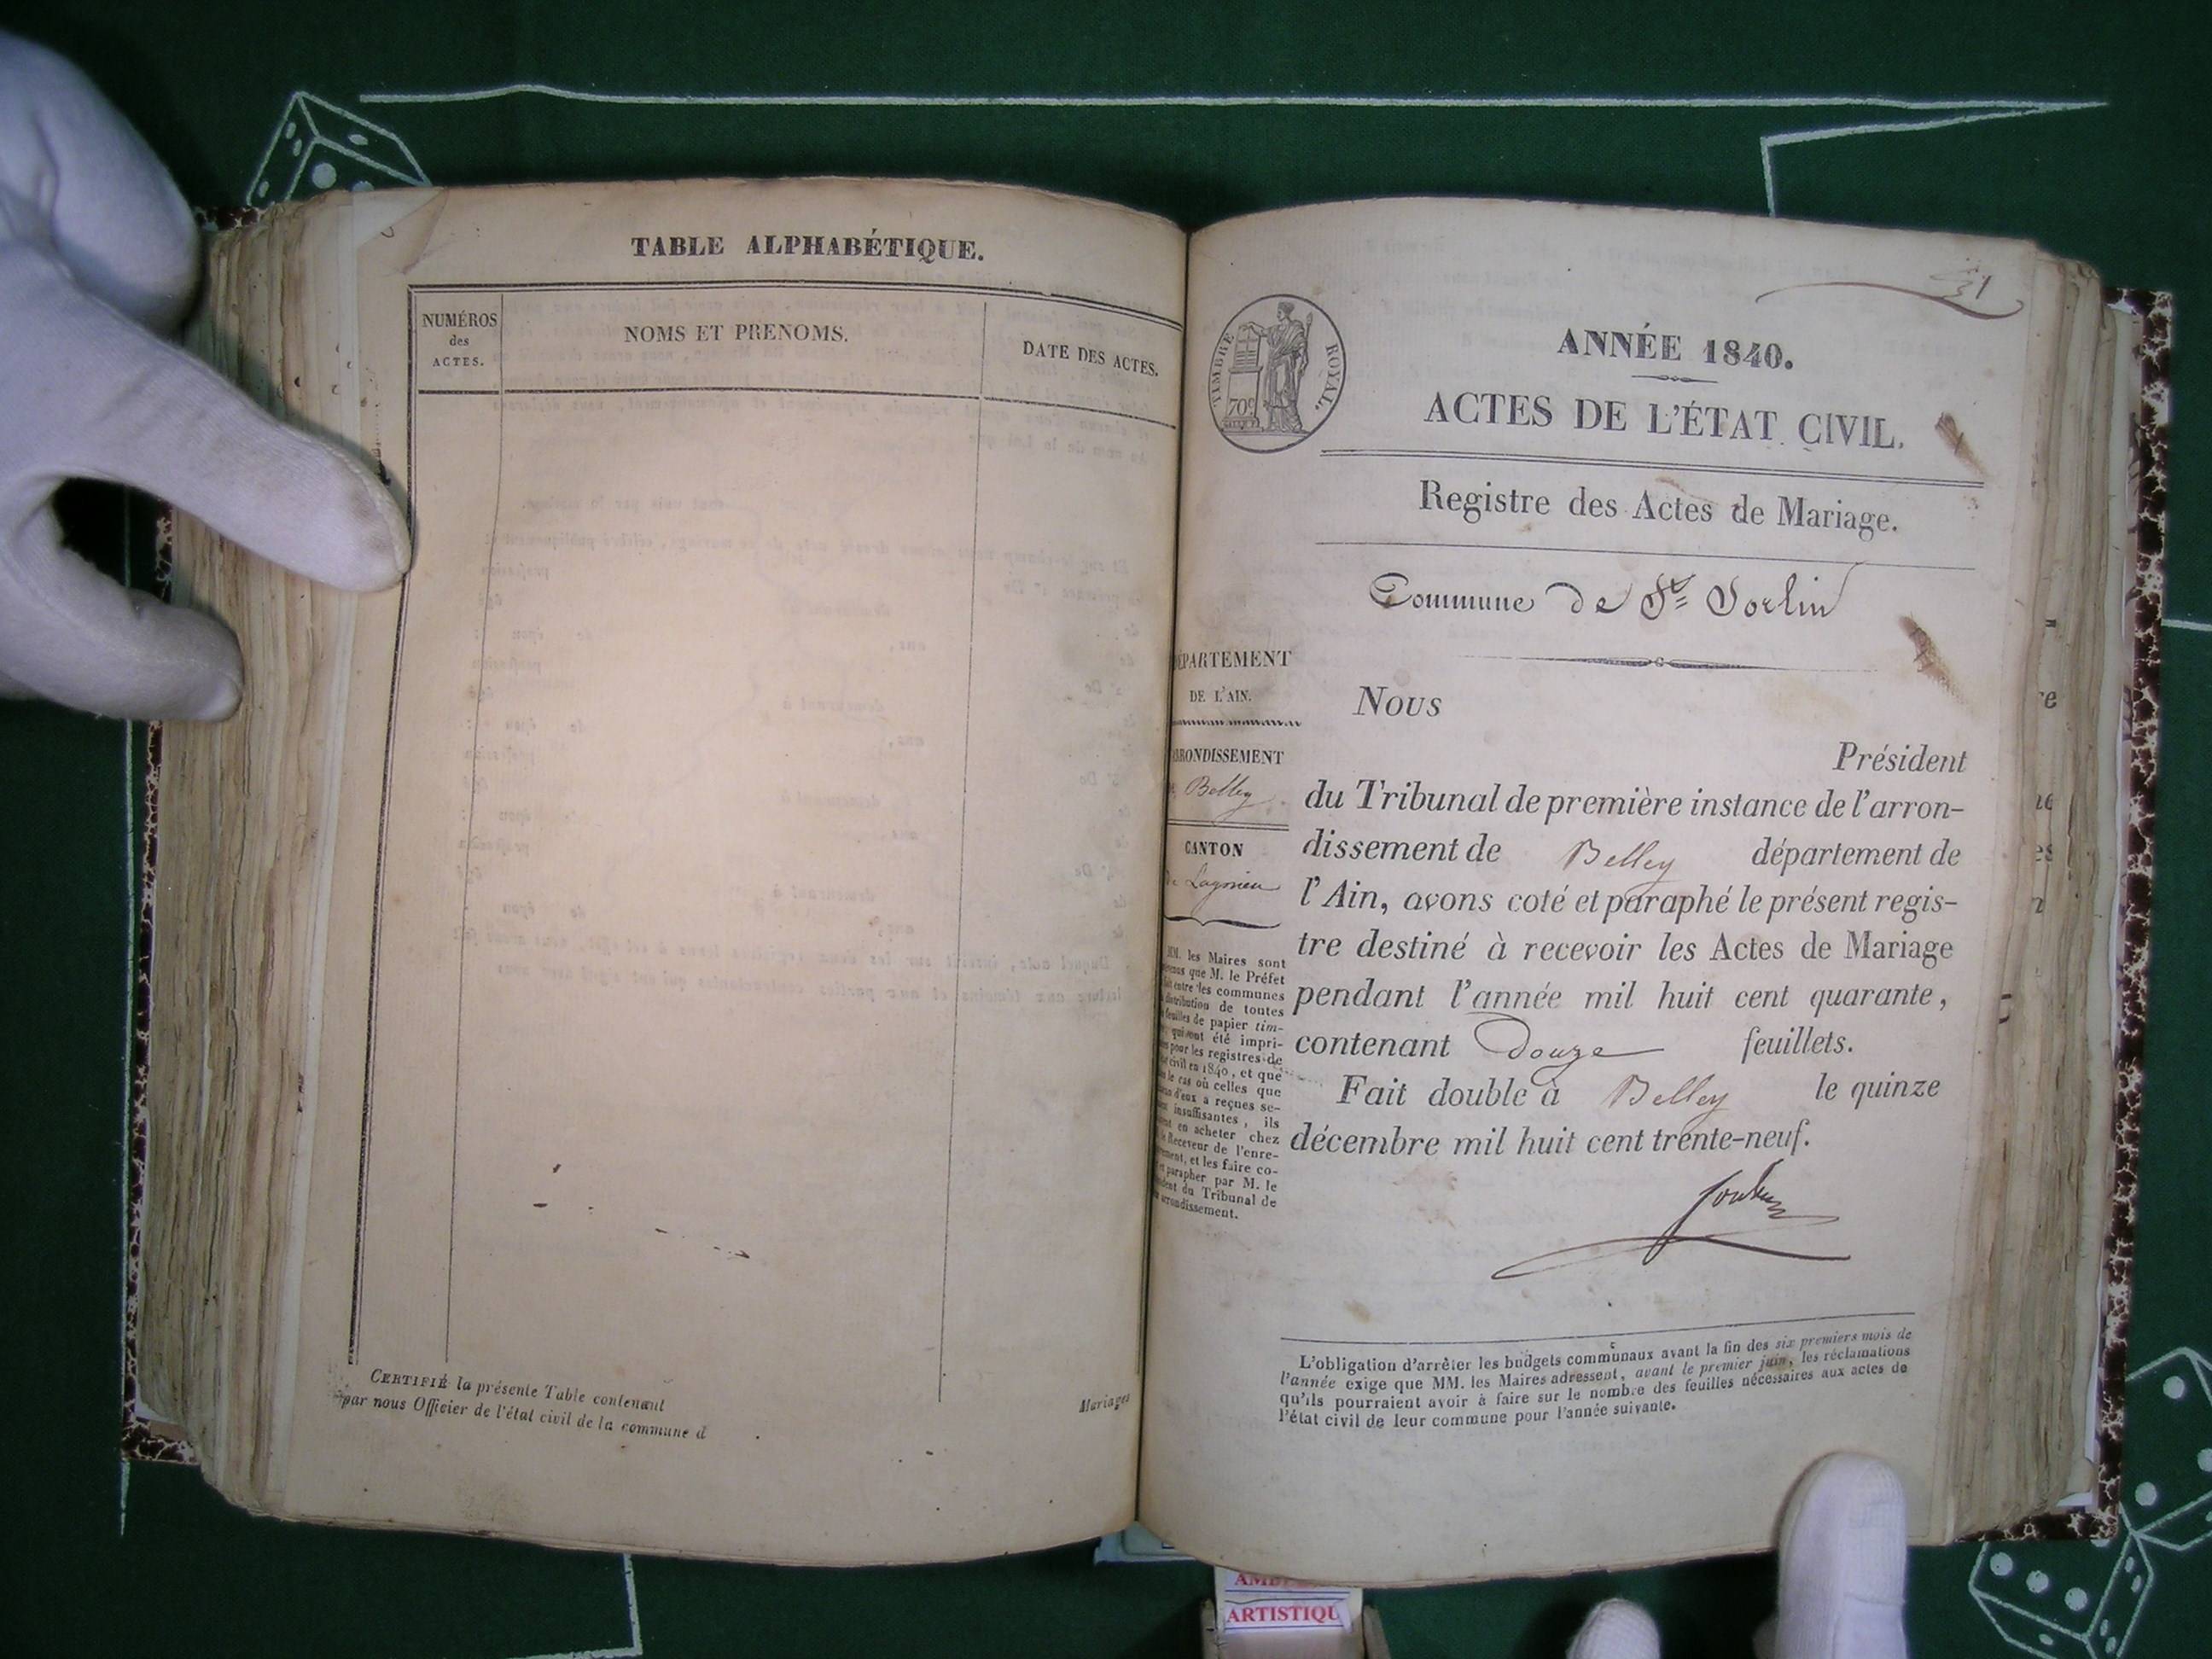 TABLE ALPHABÉTIQUE.
NUMÉROS
des
ACTES.
NOMS ET PRENOMS.
DATE DES ACTES.
CERTIFIÉ la présente Table contenant
Mariages
par nous Officier de l'état civil de la commune d
TIMBRE ROYAL.
70c
ANNÉE 1840.
ACTES DE L'ÉTAT CIVIL.
Registre des Actes de Mariage.
Commune de St Sorlin
DÉPARTEMENT
DE L'AIN.
ARRONDISSEMENT
Belley
CANTON
De Lagnieu
MM. les Maires sont
que M. le Préfet
fait entre les communes
distribution de toutes
feuilles de papier tim-
qui ont été impri-
pour les registres de
civil en 1840, et que
le cas où celles que
d'eux a reçues se-
insuffisantes, ils
en acheter chez
le Receveur de l'enre-
et les faire co-
et parapher par M. le
du Tribunal de
arrondissement.
Nous
Président
du Tribunal de première instance de l'arron-
dissement de Belley département de
l'Ain, avons coté et paraphé le présent regis-
tre destiné à recevoir les Actes de Mariage
pendant l'année mil huit cent quarante,
contenant Douze feuillets.
Fait double à Belley le quinze
décembre mil huit cent trente-neuf.
L'obligation d'arrêter les budgets communaux avant la fin des six premiers mois de
l'année exige que MM. les Maires adressent, avant le premier juin, les réclamations
qu'ils pourraient avoir à faire sur le nombre des feuilles nécessaires aux actes de
l'état civil de leur commune pour l'année suivante.
ARTISTIQU